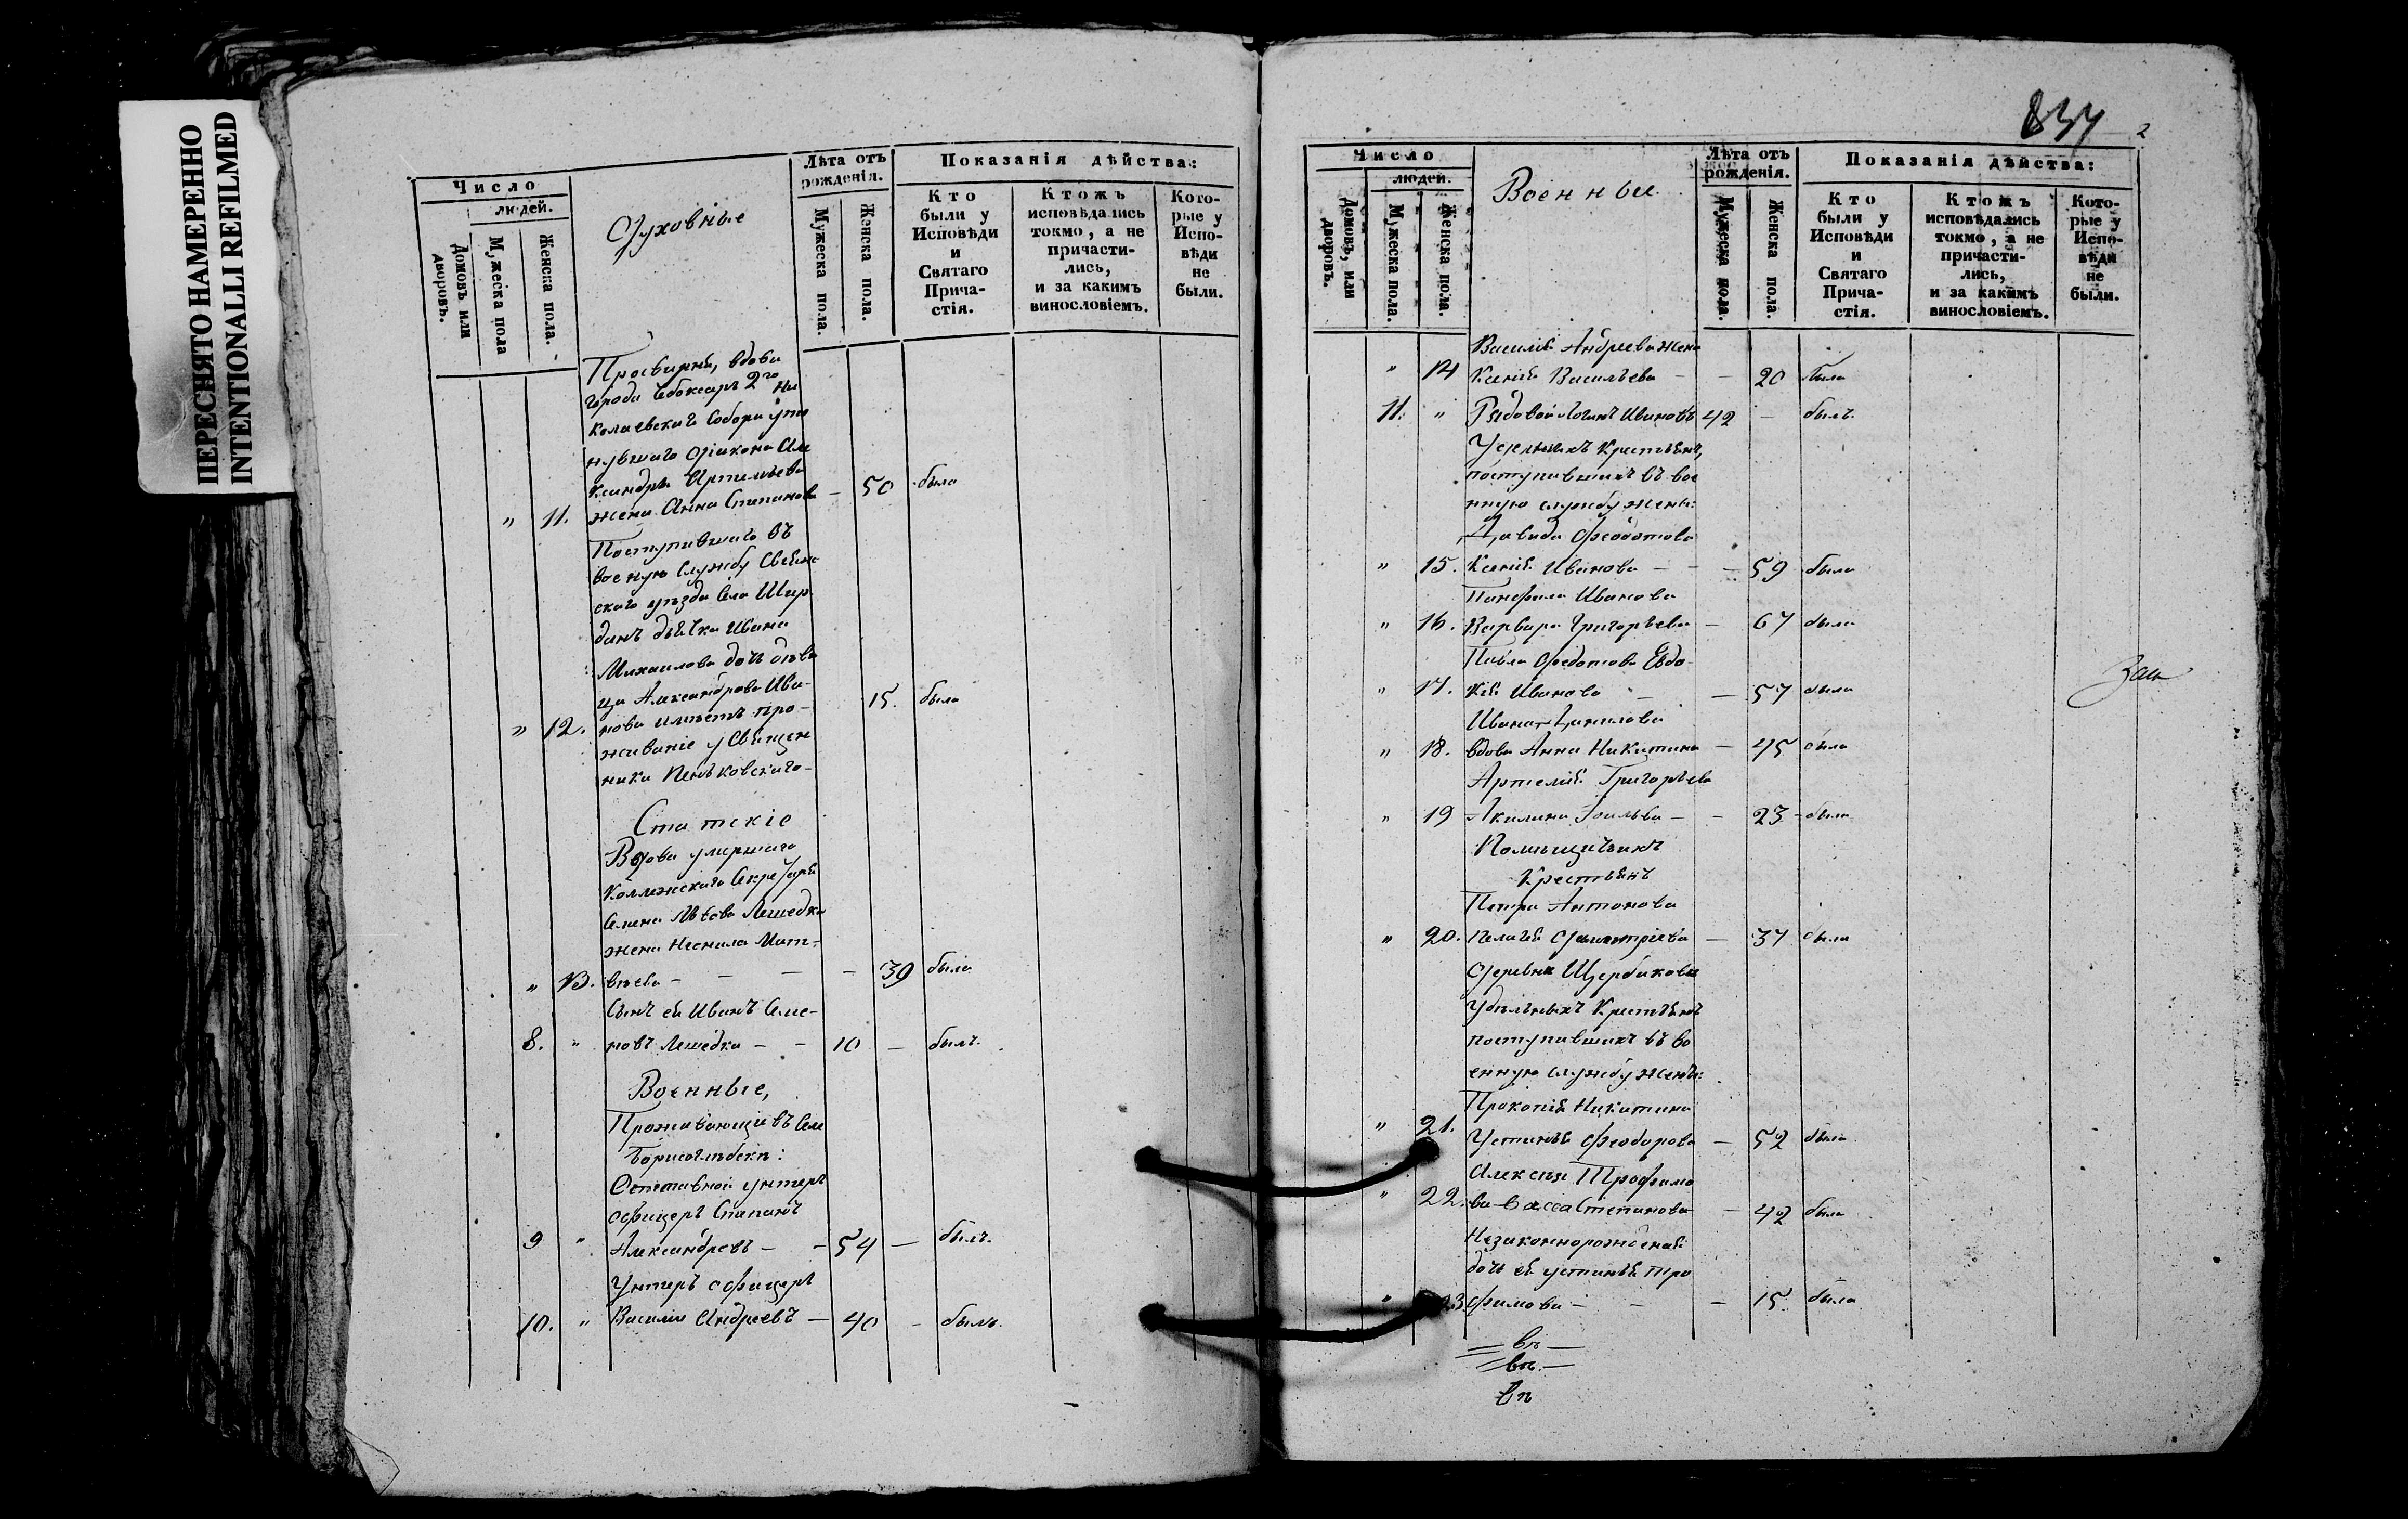 ПЕРЕСНЯТО НАМЕРЕННО
INTENTIONALLI REFILMED
Число
людей.
Домовъ или дворовъ.
Мужеска пола
Женска пола.
Духовные
Лѣта отъ рожденія.
Мужеска пола.
Женска пола.
Показанія дѣйства:
Кто были у Исповѣди и Святаго Причастія.
Ктожъ исповѣдались токмо, а не причастились, и за какимъ винословіемъ.
Которые у Исповѣди не были.
Просвирня, вдова
города Чебоксаръ 2го Ни
колаевскаго Собора
нувшаго Діакона Але
ксандра Артемьева
" 11. жена Анна Степанова – 50 была
Поступившаго въ
военную службу Свіяж
скаго уѣзда села Шир
данъ дьячка Ивана
Михаилова дочь дѣви
ца Александра Ива- 15. была
" 12. нова имѣетъ про-
живаніе у Священ
ника Пеньковскаго-
Статскіе
Вдова умершаго
Коллежскаго Секретаря
Семена Львова Лешедка
жена Неонила Мат-
" 13. вѣева – – – – 39 была
Сынъ ея Иванъ Семе-
8. " новъ Лешедка – – 10 – былъ.
Военные,
Проживающіе въ Селе
Борисоглѣбскѣ:
Отставной унтеръ
офицеръ Степанъ
9 " Александровъ – – 54 – былъ.
Унтеръ офицеръ
10. " Василій Андреевъ – 40 – былъ.
834 2
Число
людей.
Домовъ, или дворовъ.
Мужеска пола.
Женска пола.
Военные
Лѣта отъ рожденія.
Мужеска пола.
Женска пола.
Показанія дѣйства:
Кто были у Исповѣди и Святаго Причастія.
Ктожъ исповѣдались токмо, а не причастились, и за какимъ винословіемъ.
Которые у Исповѣди не были.
Василія Андреева жена
" 14 Ксенія Васильева – – 20 была
11. " Рядовой Логинъ Ивановъ 42 – былъ.
Удельныхъ Крестьянъ,
поступившихъ въ вое
нную службу жены:
Давида Феодотова
" 15. Ксенія Иванова – – – 59 была
Панфила Иванова
" 16. Варвара Григорьева – 67 была
Павла Федотова Евдо-
" 17. кія Иванова – – 57 была
Ивана Данилова
" 18. вдова Анна Никитина – 45 была
Артемія Григорьева
" 19 Акилина – – 23 – была
Помѣщичьихъ
Крестьянъ
Петра Антонова
" 20. Пелагія Димитріева – 37 была
Деревни Щербаковы
Удѣльныхъ Крестьянъ
поступившихъ въ во
енную службу жены:
Прокопія Никитина
" 21. Устинья Феодорова – 52 была
Алексѣя Трофимо
" 22. ва Васса Степанова – 42 была
Незаконнорожденая
дочь ея Устинья Тро
" 23 фимова – – – 15. была